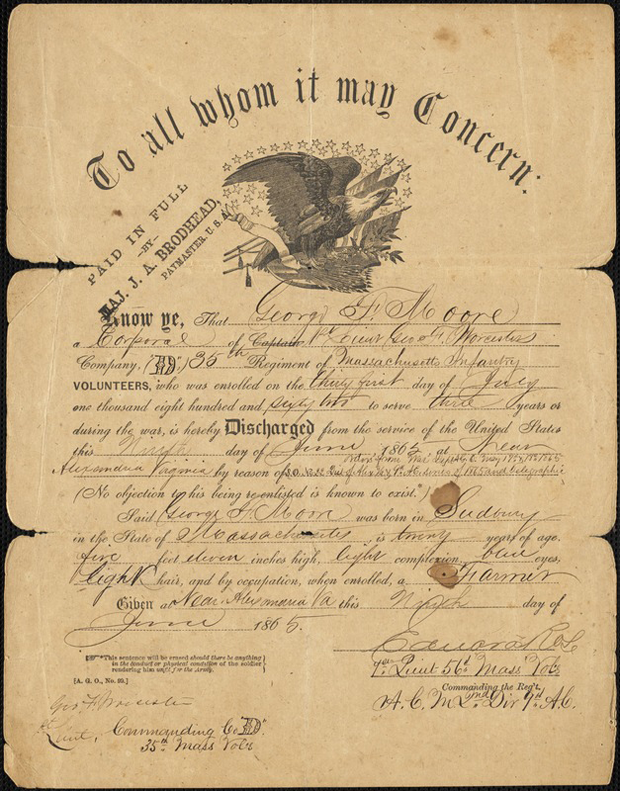 To all whom it may Concern:
PAID IN FULL
—BY—
MAJ. J. A. BRODHEAD,
PAYMASTER. U. S. A.
Know ye, That George F. Moore
a Corporal of Captain 1st Lieut Geo F. Worcester
Company, ("D",) 35th Regiment of Massachusetts Infantry
VOLUNTEERS, who was enrolled on the thirty first day of July
one thousand eight hundred and sixty two to serve three years or
during the war, is hereby Discharged from the service of the United States
this Ninth day of June 1865 at Near
Alexandria Virginia by reason of
(No objection to his being re-enlisted is known to exist.*)
Said George F. Moore was born in Sudbury
in the State of Massachusetts is twenty years of age.
five feet eleven inches high, light complexion, blue eyes,
light hair, and by occupation, when enrolled, a Farmer
Given at Near Alexandria Va this Ninth day of
June 1865.
1st Lieut 56th Mass Vols
Commanding the Reg't.
A. C. M. 2nd Div 9th A.C.
*This sentence will be erased should there be anything
in the conduct or physical condition of the soldier
rendering him unfit for the Army.
[A. G. O., No. 99.]
Geo F Worcester
1st Lieut, Commanding Co "D"
35th Mass Vols